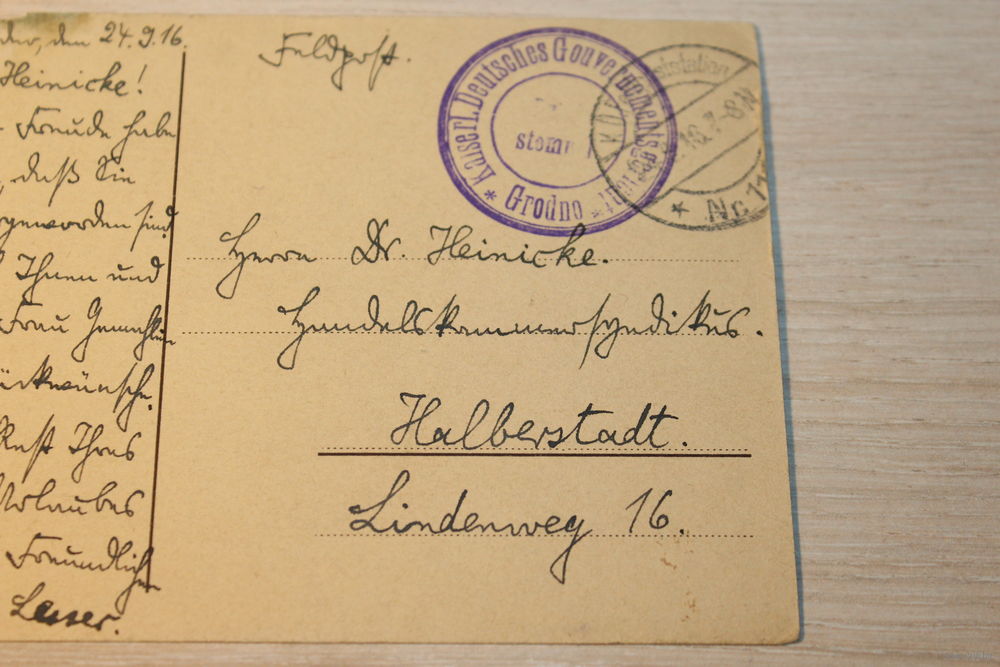 den 24.9.16.
Heinicke!
Freude habe
, daß Sie
geworden sind
Ihnen und
Frau Gemahlin
ückwünsche.
Rest Ihres
Urlaubes
Freundlich
Lesser.
Feldpost.
* Kaiserl. Deutsches Gouvernementsgericht *
Grodno
Poststation
16. 7-8N
* Nr. 11
Herrn Dr. Heinicke.
Handelskammersyndikus.
Halberstadt.
Lindenweg 16.